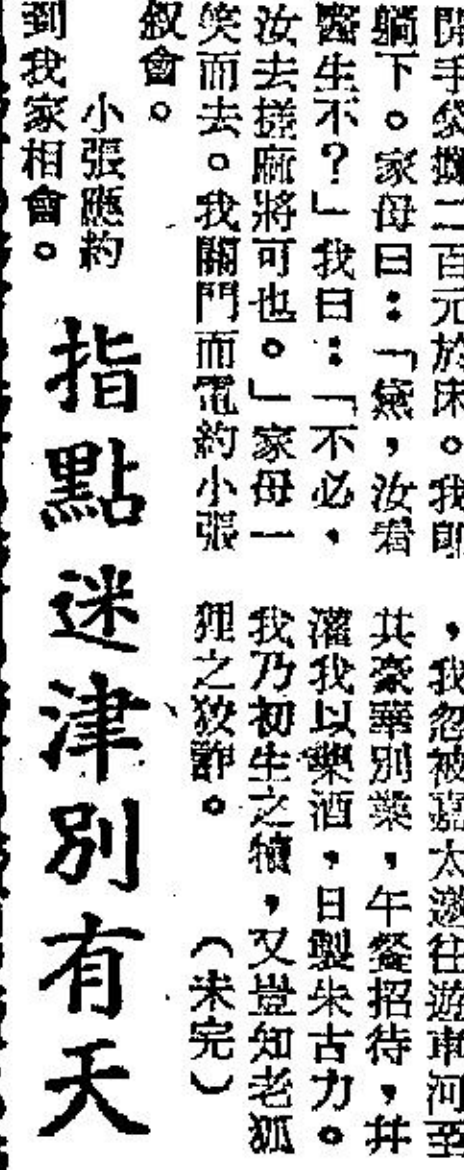 開手袋擲二百元於床。我即
躺下。家母曰：「黛，汝看
醫生不？」我曰：「不必，
汝去搓麻將可也。」家母一
笑而去。我關門而電約小張
叙會。
小張應約
到我家相會。
指點迷津別有天
，我忽被嘉太邀往游車河至
其豪華別業，午餐招待，幷
灌我以藥酒，日製朱古力。
我乃初生之犢，又豈知老狐
狸之狡詐。
（未完）